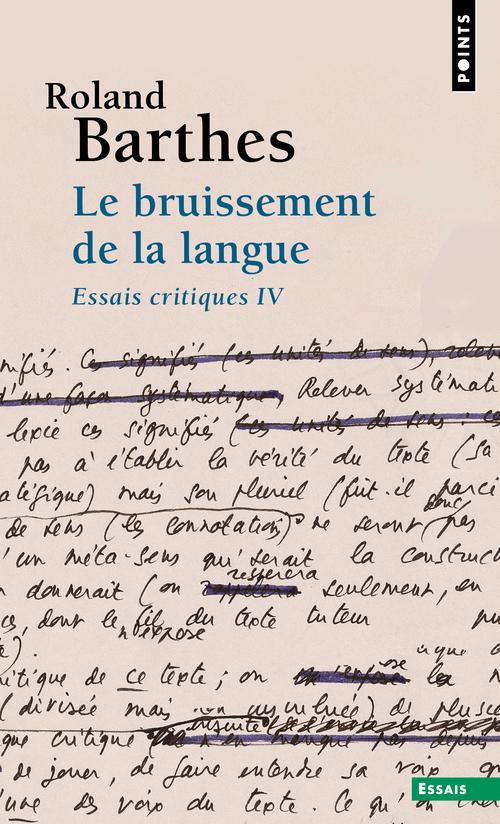 POINTS
Roland
Barthes
Le bruissement
de la langue
Essais critiques IV
nifiés. Ces signifiés (ces unités de sens),
d'une façon systématique, Relever systémati
lexie ces signifiés (ces unités de sens : ces
pas à établir la vérité du texte (sa
atégique) mais son pluriel (fût-il parci
donc
de sens (les connotations) ne seront pas
un méta-sens qu'serait la construct
respectera
donnerait (on seulement, en
ces, dont le fil du texte tuteur
n'expose
critique de ce texte ; on la
(divisée mais non de plus
ensuite
que critique
de jouer, de faire entendre sa voix
une des voix du texte. Ce qu'on
ESSAIS